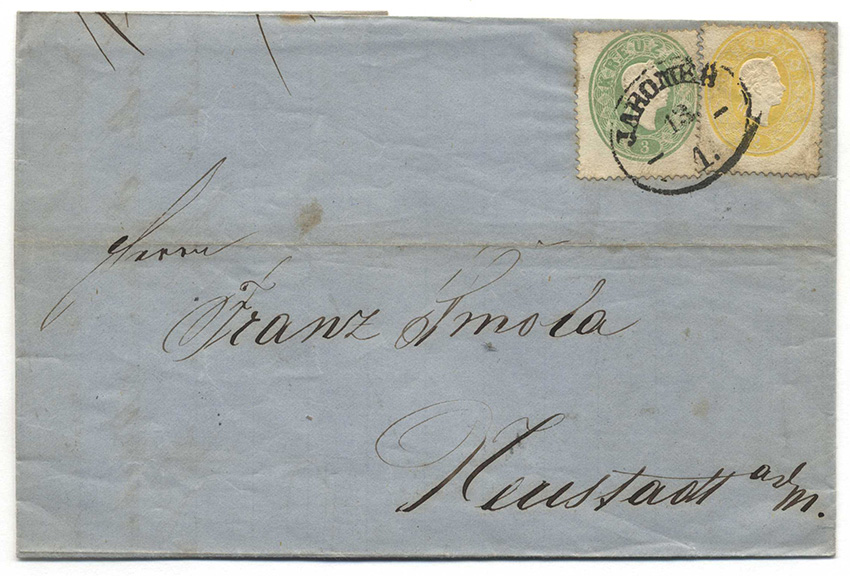 KREUZ
3
JAROMEŘ
13
1.
Herrn
Franz Smola
Neustadt a/d M.